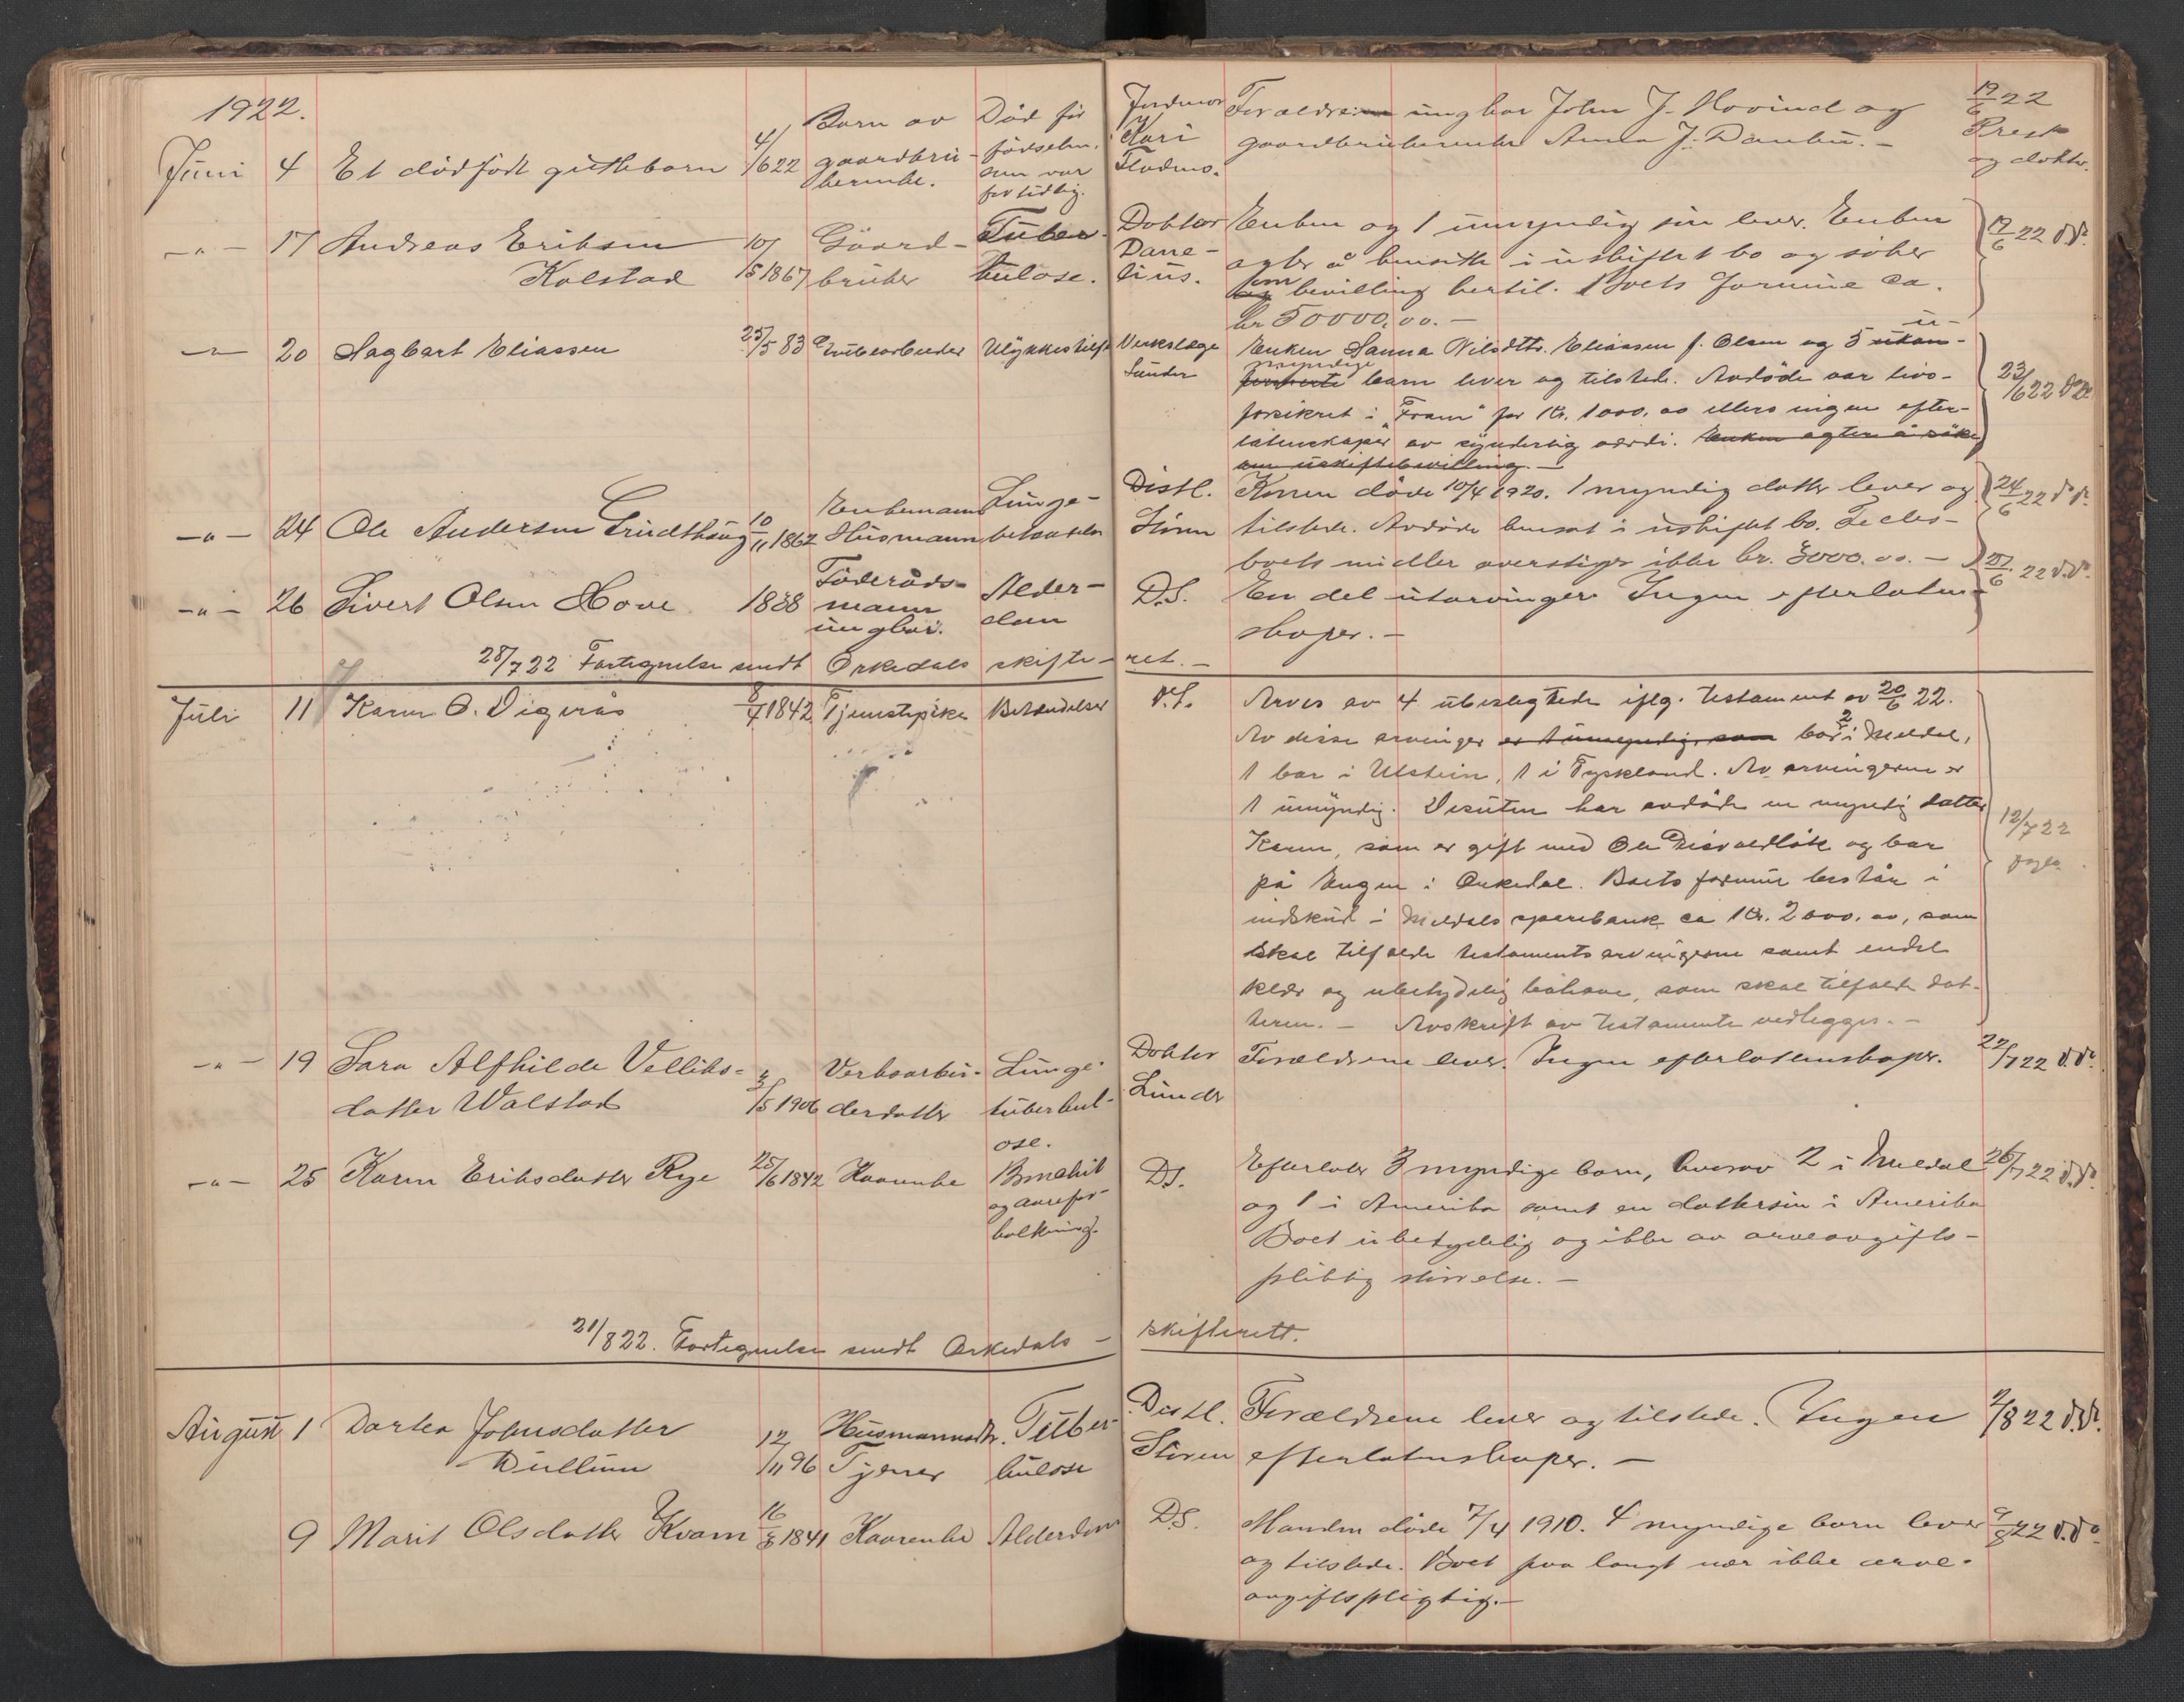 1922.
Juni 4 Et dødfødt guttebarn 4/6 22 Barn av gaardbru-berinde. Død før fødselen, som var for tidlig. Jordmor Kari Flodmo. Forældre: ungkar John J. Hovind og
gaardbrukerenke Anna J. Danbu. - 19/6 22 Prest og doktor.
-"- 17 Andreas Eriksen Kolstad 10/5 1867 Gaard-bruker Tuber-kulose. Doktor Dane-lius. Enken og 1 umyndig søn lever. Enken
agter å hensitte i uskiftet bo og søker
om bevilling hertil. Boets formue ca.
kr 50000,00. - 17/6 22 d.d.
-"- 20 Dagbart Eliassen 25/5 83 Grubearbeider Ulykkestilf. Verkslæge Lunder Enken Hanna Nilsdttr. Eliassen f. Olsen og 5 u-
myndige barn lever og tilstede. Avdøde var livs-
forsikret i "Fram" for Kr. 1000,00 ellers ingen efter-
latenskaper av synderlig værdi. Enken agter å søke
om uskiftebevilling. - 23/6 22 d.d.
-"- 24 Ole Andersen Grudthaug 10/11 1862 Enkemann Husmann Lunge-betændelse Distl. Støren Konen døde 10/4 1920. 1 myndig datter lever og
tilstede. Avdøde hensat i uskiftet bo. Fælles-
boets midler overstiger ikke kr. 3000.00. - 24/6 22 d.d.
-"- 26 Sivert Olsen Hove. 1838 Føderåds-mann ungkar. Alder-dom D.S. En del utarvinger. Ingen efterlaten-
skaper. - 27/6 22 d.d.
28/7 22 Fortegnelse sendt Orkedals skifte-ret. -
Juli 11 Karen O. Digerås 8/4 1842 Tjenestepike Betændelser D.S. Arves av 4 ubeslegtede iflg. testament av 20/6 22.
Av disse arvinger er 1 umyndig, som bor 2 i Meldal,
1 bor i Ulstein, 1 i Tyskland. Av arvingerne er
1 umyndig. Desuten har avdøde en myndig datter
Karen, som er gift med Ole and bor
på Engen i Orkedal. Boets formue består i
indskud i Meldals sparebank ca Kr. 2000,00, som
skal tilfalde testamentsarvingerne samt endel
klær og ubetydelig bohave, som skal tilfalde dat-
teren. - Avskrift av testamente vedlegges. - 12/7 22
-"- 19 Sara Alfhilde Velliks-datter Walstad /5 1906 Verksarbei-derdatter Lunge-tuberkul-ose. Doktor Lunder Forældrene lever. Ingen efterlatenskaper. 22/7 22 d.d.
-"- 25 Karen Eriksdatter Rye 25/6 1842 Kaarenke og aarefor-kalkning. D.S. Efterlater 3 myndige barn, hvorav 2 i Meldal
og 1 i Amerika samt en dattersøn i Amerika
Boet ubetydelig og ikke av arveavgifts-
pliktig størrelse. - 26/7 22 d.d.
21/8 22. Fortegnelse sendt Orkedals - skifterett.
August 1 Dortea Johnsdatter Dullum 12/11 96 Husmannsdtr. Tjener Tuber-kulose Distl. Støren Forældrene lever og tilstede. Ingen
efterlatenskaper. - 2/8 22 d.d.
9 Marit Olsdatter Kvam 16/8 1841 Kaarenke Alderdom D.S. Manden døde 7/4 1910. 4 myndige barn lever
og tilstede. Boet paa langt nær ikke arve-
avgiftspligtig. - 9/8 22 d.d.